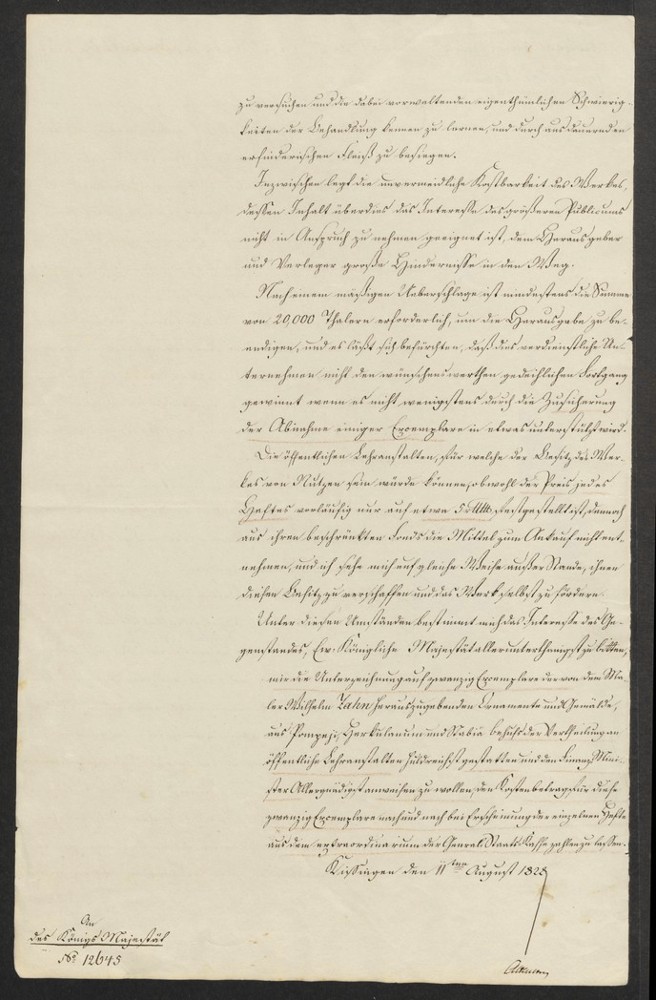 zu versuchen und die dabei vorwaltenden eigenthümlichen Schwierig-
keiten der Behandlung kennen zu lernen, und durch ausdauernden
erfinderischen Fleiß zu besiegen.
Inzwischen legt die unvermeidliche Kostbarkeit des Werkes,
dessen Inhalt überdies das Interesse des größeren Publicums
nicht in Anspruch zu nehmen geeignet ist, dem Herausgeber
und Verleger große Hindernisse in den Weg.
Nach einem mäßigen Ueberschlage ist mindestens die Summe
von 20,000 Thalern erforderlich, um die Herausgabe zu be-
endigen, und es läßt sich befürchten, daß das verdienstliche Un-
ternehmen nicht den wünschenswerthen gedeihlichen Fortgang
gewinnt wenn es nicht wenigstens durch die Zusicherung
der Abnahme einiger Exemplare in etwas unterstützt wird.
Die öffentlichen Lehranstalten, für welche der Besitz des Wer-
kes von Nutzen sein würde können, obwohl der Preis jedes
Heftes vorläufig nur auf etwa festgestellt ist, dennoch
aus ihren beschränkten Fonds die Mittel zum Ankauf nicht ent-
nehmen, und ich sehe mich auf gleiche Weise außer Stande, ihnen
diesen Besitz zu verschaffen und das Werk selbst zu fördern.
Unter diesen Umständen bestimmt mich das Interesse des Ge-
genstandes, Ew. Königliche Majestät allerunterthänigst zu bitten,
mir die Unterzeichnung auf zwanzig Exemplare der von dem Ma-
ler Wilhelm Zahn herauszugebenden Ornamente und Gemälde,
aus Pompeji, Herkulanum und Stabiä behufs der Vertheilung an
öffentliche Lehranstalten huldreichst gestatten und den Finanz Mini-
ster Allergnädigst anweisen zu wollen, den Kostenbetrag für diese
zwanzig Exemplare nach und nach bei Erscheinung der einzelnen Hefte
aus dem extraordinarium der General Staats Kasse zahlen zu lassen.
Kissingen den 11ten August 1828
An
des Königs Majestät
No 12645
Altenstein